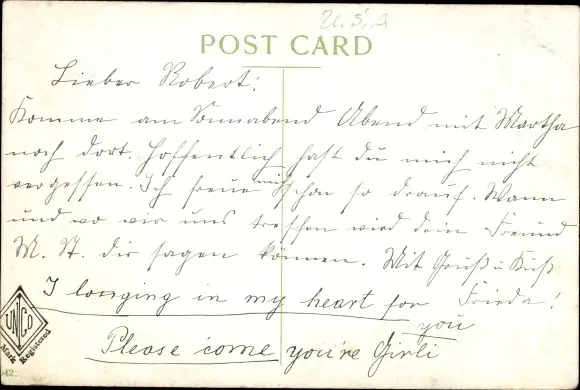 U.S.A
POST CARD
Lieber Robert!
Komme am Sonnabend Abend mit Martha
noch dort. Hoffentlich hast du mich nicht
vergessen. Ich freue mich schon so drauf. Wann
und wo wir uns treffen wird dein Freund
M. St. dir sagen können. Mit Gruß u Kuß
Frieda!
I longing in my heart for
you
Please come you're Girli
UNCO
Mark Registered